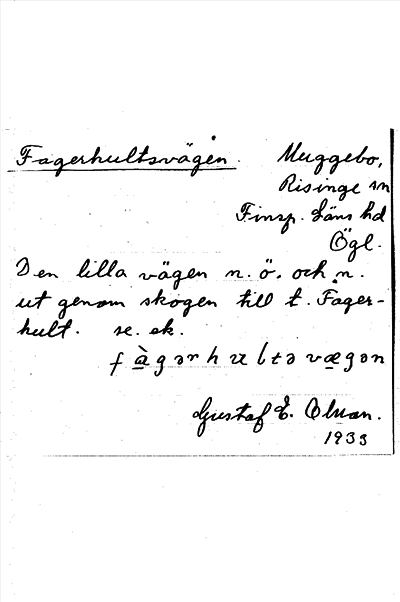 Fagerhultsvägen. Muggebo,
Risinge sn
Finsp. Läns hd
Ögl.
Den lilla vägen n. ö. och n.
ut genom skogen till t. Fager-
hult. se. ek.
f à gər h ul tə vægən
Gustaf E. Olsson.
1933